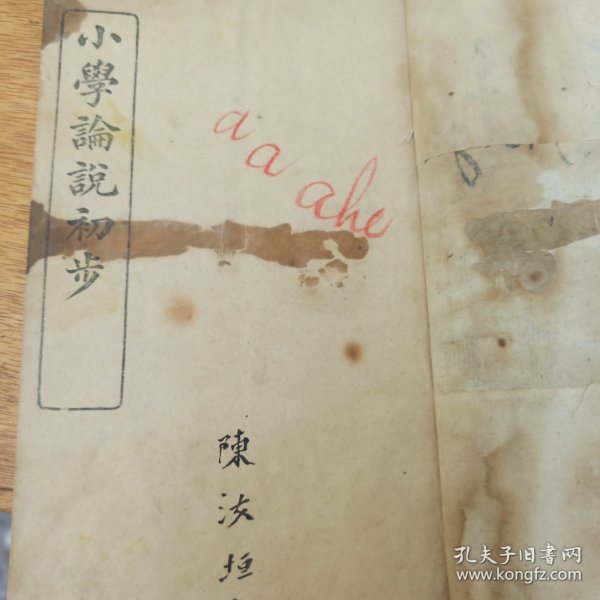 小學論說初步
a
a
ahe
陳
垣
孔夫子旧书网
www.kongfz.com